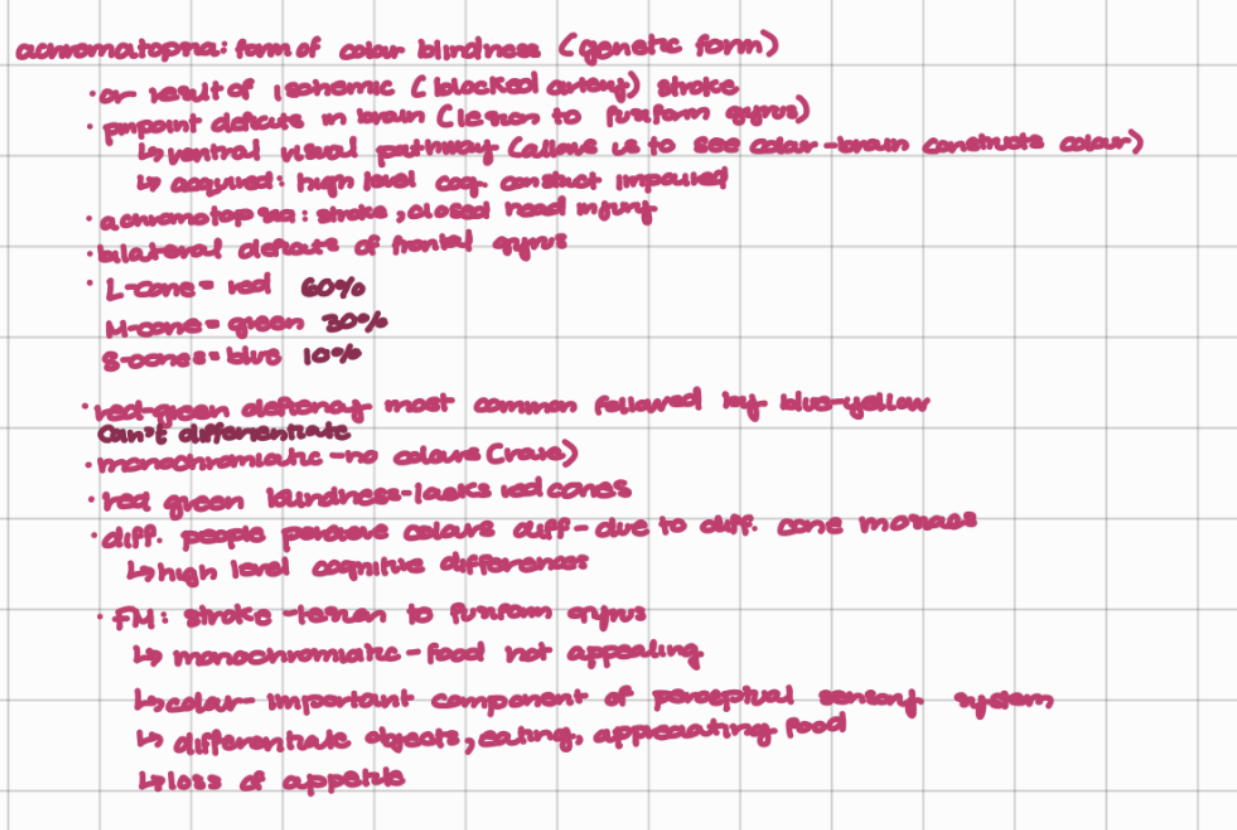 achromatopsia: form of colour blindness (genetic form)
· or result of ischemic (blocked artery) stroke
· pinpoint deficits in brain (lesion to fusiform gyrus)
↳ ventral visual pathway (allows us to see colour - brain constructs colour)
↳ acquired: high level cog. construct impaired
· achromotopsia: stroke, closed head injury
· bilateral deficits of frontal gyrus
· L-cone = red 60%
M-cone = green 30%
S-cones = blue 10%
· red-green deficiency most common followed by blue-yellow
Can't differentiate
· monochromiatic - no colours (rare)
· red green blindness - lacks red cones
· diff. people perceive colours diff - due to diff. cone mosaics
↳ high level cognitive differences
· FM: stroke - lesion to fusiform gyrus
↳ monochromiatic - food not appealing
↳ colour - important component of perceptual sensory system
↳ differentiate objects, eating, appreciating food
↳ loss of appetite